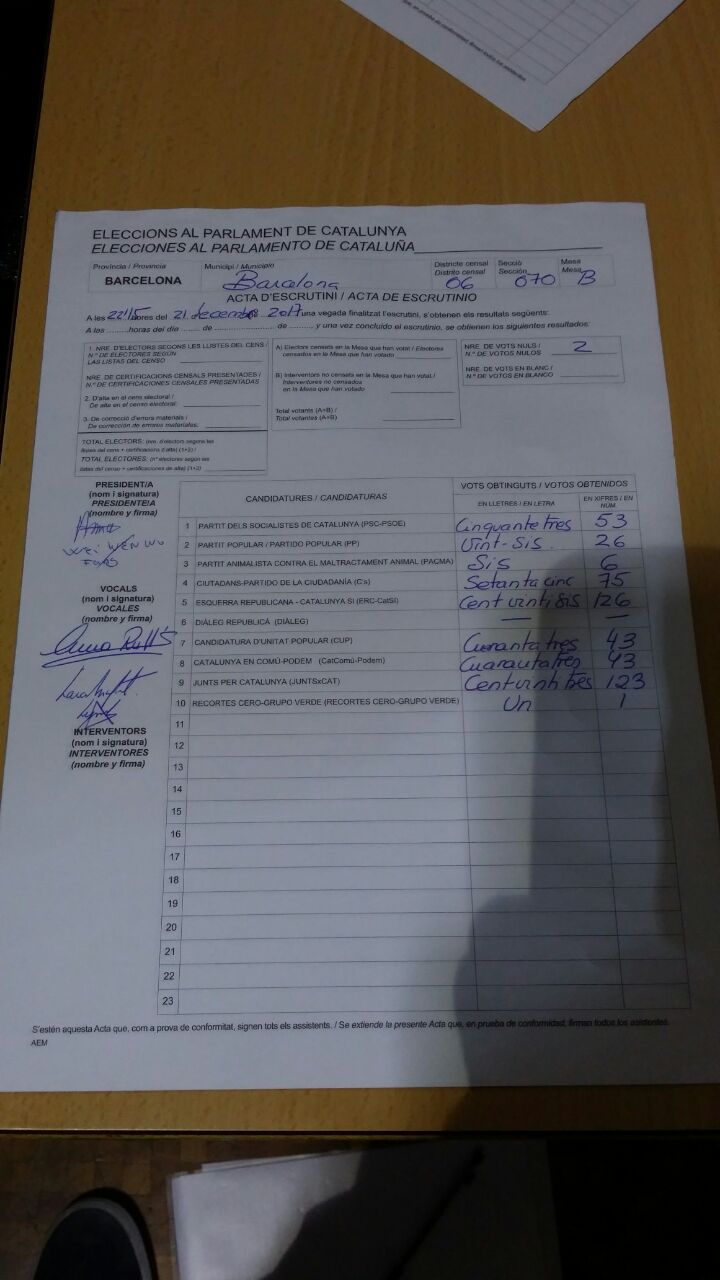 ELECCIONS AL PARLAMENT DE CATALUNYA
ELECCIONES AL PARLAMENTO DE CATALUÑA
Província / Provincia
BARCELONA
Municipi / Municipio
Barcelona
Districte censal
Distrito censal
06
Secció
Sección
070
Mesa
Mesa
B
ACTA D'ESCRUTINI / ACTA DE ESCRUTINIO
A les 22:15 hores del 21 decembre de 2017 una vegada finalitzat l'escrutini, s'obtenen els resultats següents:
A las .........horas del día ....... de ................. de ........, y una vez concluido el escrutinio, se obtienen los siguientes resultados:
1. NRE. D'ELECTORS SEGONS LES LLISTES DEL CENS /
N.º DE ELECTORES SEGÚN
LAS LISTAS DEL CENSO
NRE. DE CERTIFICACIONS CENSALS PRESENTADES /
N.º DE CERTIFICACIONES CENSALES PRESENTADAS
2. D'alta en el cens electoral /
De alta en el censo electoral:
3. De correcció d'errors materials /
De corrección de errores materiales:
TOTAL ELECTORS: (nre. d'electors segons les
llistes del cens + certificacions d'alta) (1+2) /
TOTAL ELECTORES: (nº electores según las
listas del censo + certificaciones de alta) (1+2)
A) Electors censats en la Mesa que han votat / Electores
censados en la Mesa que han votado
B) Interventors no censats en la Mesa que han votat /
Interventores no censados
en la Mesa que han votado
Total votants (A+B) /
Total votantes (A+B)
NRE. DE VOTS NULS /
N.º DE VOTOS NULOS
2
NRE. DE VOTS EN BLANC /
N.º DE VOTOS EN BLANCO
PRESIDENT/A
(nom i signatura)
PRESIDENTE/A
(nombre y firma)
WEI WEN WU
VOCALS
(nom i signatura)
VOCALES
(nombre y firma)
INTERVENTORS
(nom i signatura)
INTERVENTORES
(nombre y firma)
CANDIDATURES / CANDIDATURAS
VOTS OBTINGUTS / VOTOS OBTENIDOS
EN LLETRES / EN LETRA
EN XIFRES / EN NÚM.
1 PARTIT DELS SOCIALISTES DE CATALUNYA (PSC-PSOE) Cinquanta tres 53
2 PARTIT POPULAR / PARTIDO POPULAR (PP) Vint-sis. 26
3 PARTIT ANIMALISTA CONTRA EL MALTRACTAMENT ANIMAL (PACMA) Sis 6
4 CIUTADANS-PARTIDO DE LA CIUDADANÍA (C's) Setanta cinc 75
5 ESQUERRA REPUBLICANA - CATALUNYA SÍ (ERC-CatSÍ) Cent vinti sis 126
6 DIÀLEG REPUBLICÀ (DIÀLEG) — —
7 CANDIDATURA D'UNITAT POPULAR (CUP) Cuaranta tres 43
8 CATALUNYA EN COMÚ-PODEM (CatComú-Podem) Cuaranta tres 43
9 JUNTS PER CATALUNYA (JUNTSxCAT) Cent vinti tres 123
10 RECORTES CERO-GRUPO VERDE (RECORTES CERO-GRUPO VERDE) Un 1
11
12
13
14
15
16
17
18
19
20
21
22
23
S'estén aquesta Acta que, com a prova de conformitat, signen tots els assistents. / Se extiende la presente Acta que, en prueba de conformidad, firman todos los asistentes.
AEM